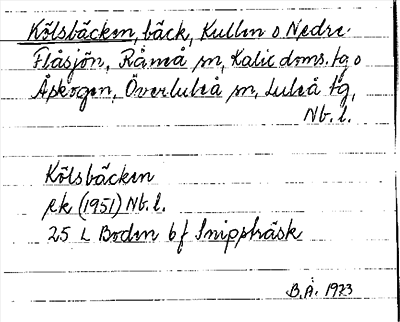 Kölsbäcken, bäck, Kullen o Nedre
Flåsjön, Råneå sn, Kalix doms. tg o
Åskogen, Överluleå sn, Luleå tg,
Nb. l.
Kölsbäcken
ek (1951) Nb. l.
25 L Boden 6 f Snippträsk
B. Å. 1973